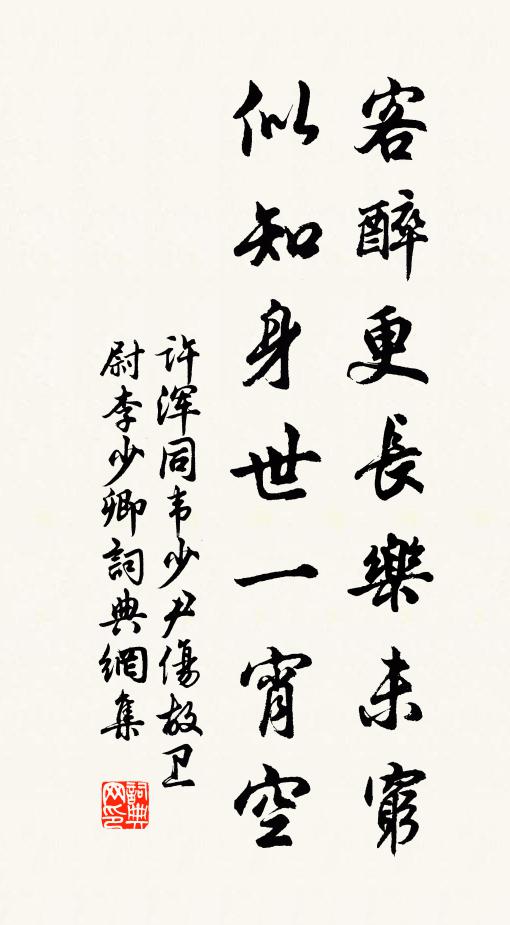 客醉更長樂未窮
似知身世一宵空
许浑同韦少尹傷故卫
尉李少卿詞典網集
詞典网印